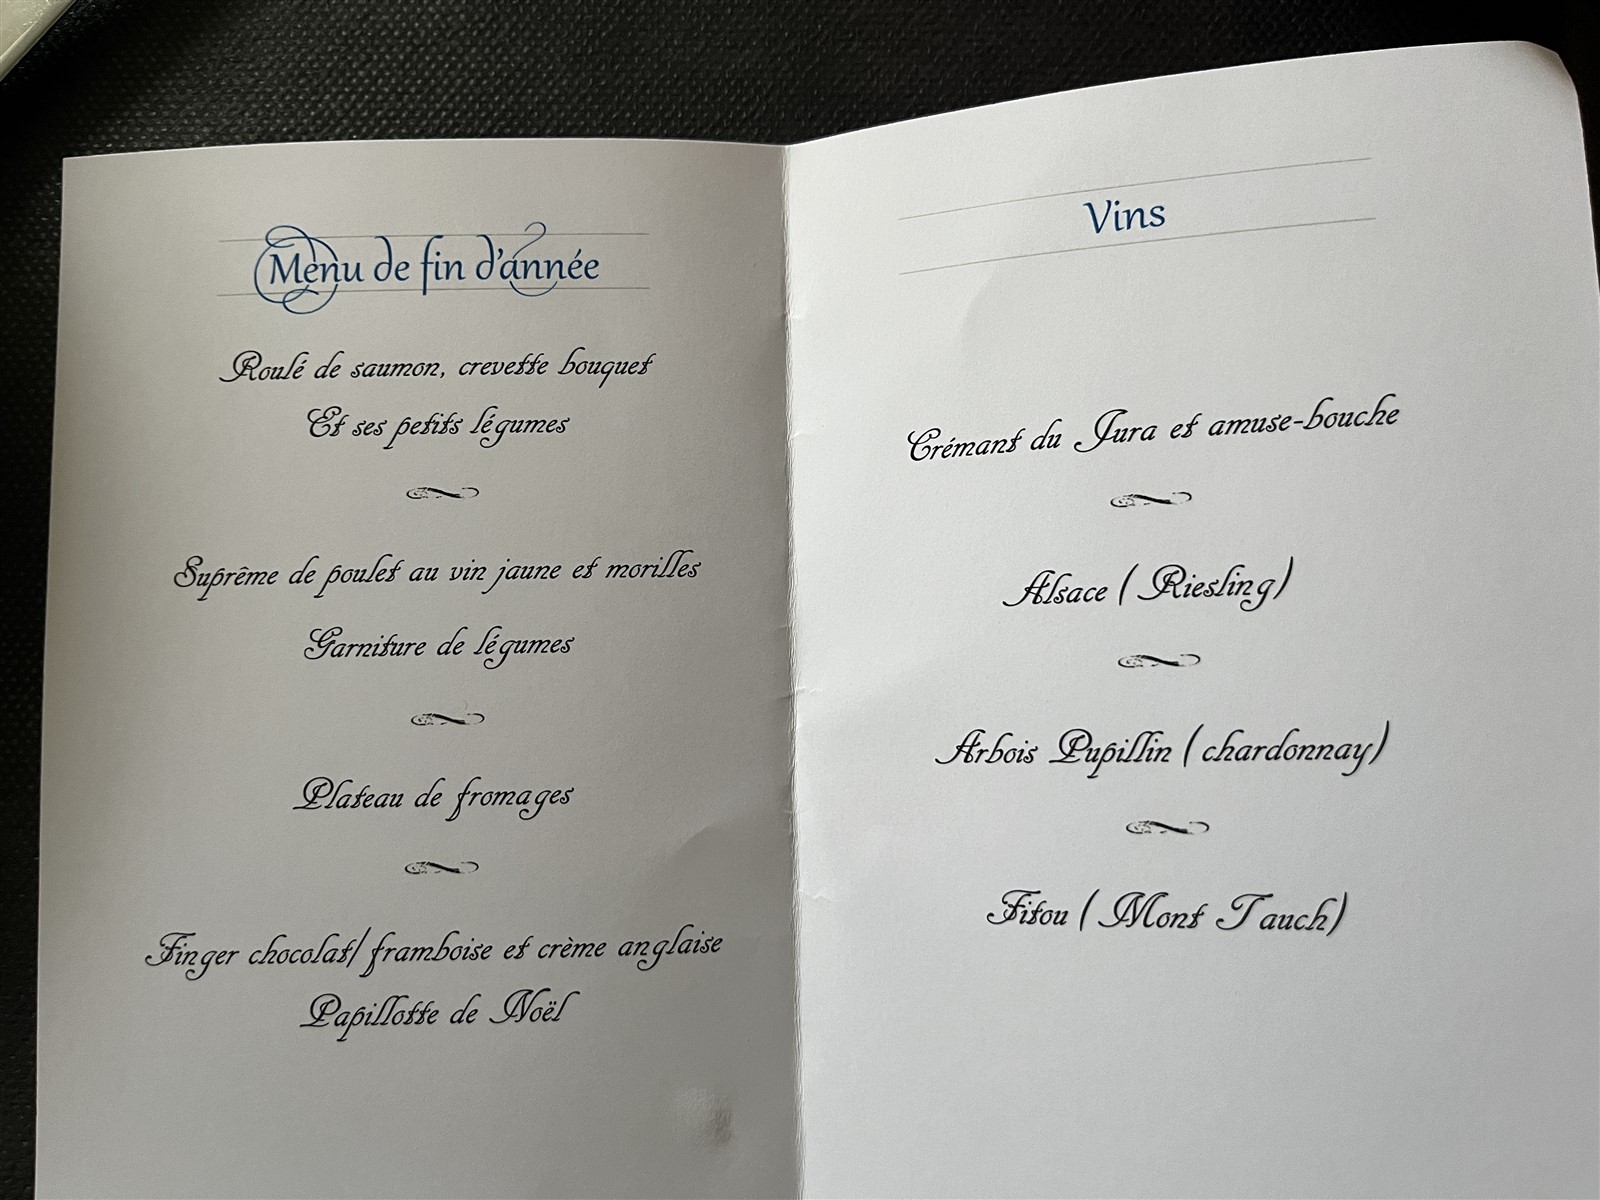 Menu de fin d'année
Roulé de saumon, crevette bouquet
Et ses petits légumes
Suprême de poulet au vin jaune et morilles
Garniture de légumes
Plateau de fromages
Finger chocolat/ framboise et crème anglaise
Papillotte de Noël
Vins
Crémant du Jura et amuse-bouche
Alsace ( Riesling)
Arbois Pupillin ( chardonnay)
Fitou ( Mont Tauch)